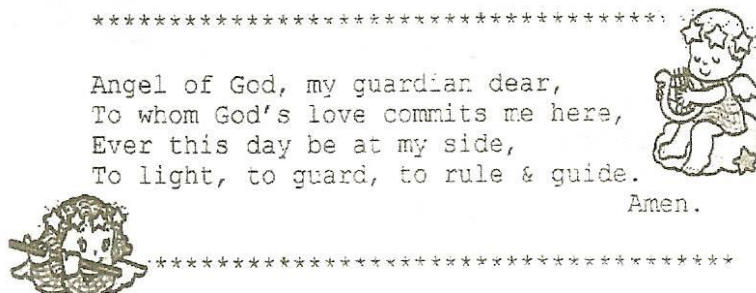 *************************************
Angel of God, my guardian dear,
To whom God's love commits me here,
Ever this day be at my side,
To light, to guard, to rule & guide.
Amen.
**************************************